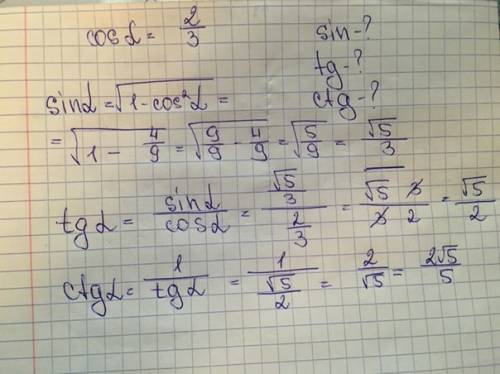 cos α = 2/3
sin - ?
tg - ?
ctg - ?
sin α = √(1 - cos²α) =
= √(1 - 4/9) = √(9/9 - 4/9) = √(5/9) = √5/3
tg α = sin α / cos α = (√5/3) / (2/3) = (√5 3) / (3 2) = √5/2
ctg α = 1 / tg α = 1 / (√5/2) = 2/√5 = 2√5/5